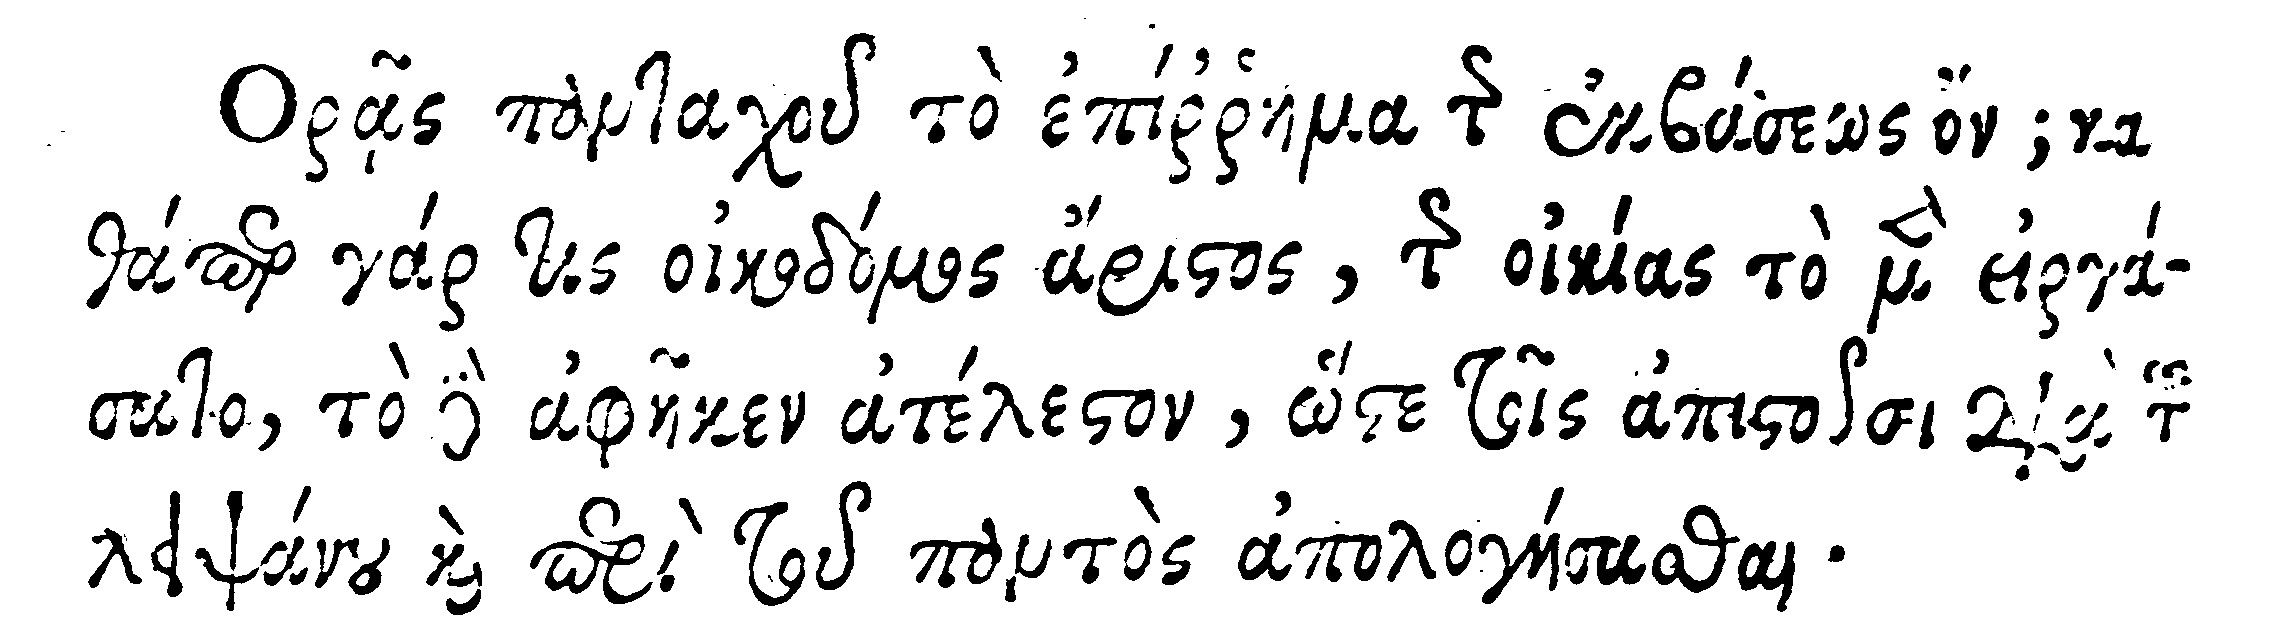 Ορᾷς πανταχοῦ τὸ ἐπίῤῥημα τῆς ἐκβάσεως ὄν; κα
θάπερ γάρ τις οἰκοδόμος ἄριστος, τῆς οἰκίας τὸ μὲν εἰργά-
σατο, τὸ δὲ ἀφῆκεν ἀτέλεστον, ὥστε τοῖς ἀπιστοῦσι διὰ τοῦ
λειψάνου καὶ περὶ τοῦ παντὸς ἀπολογήσασθαι.